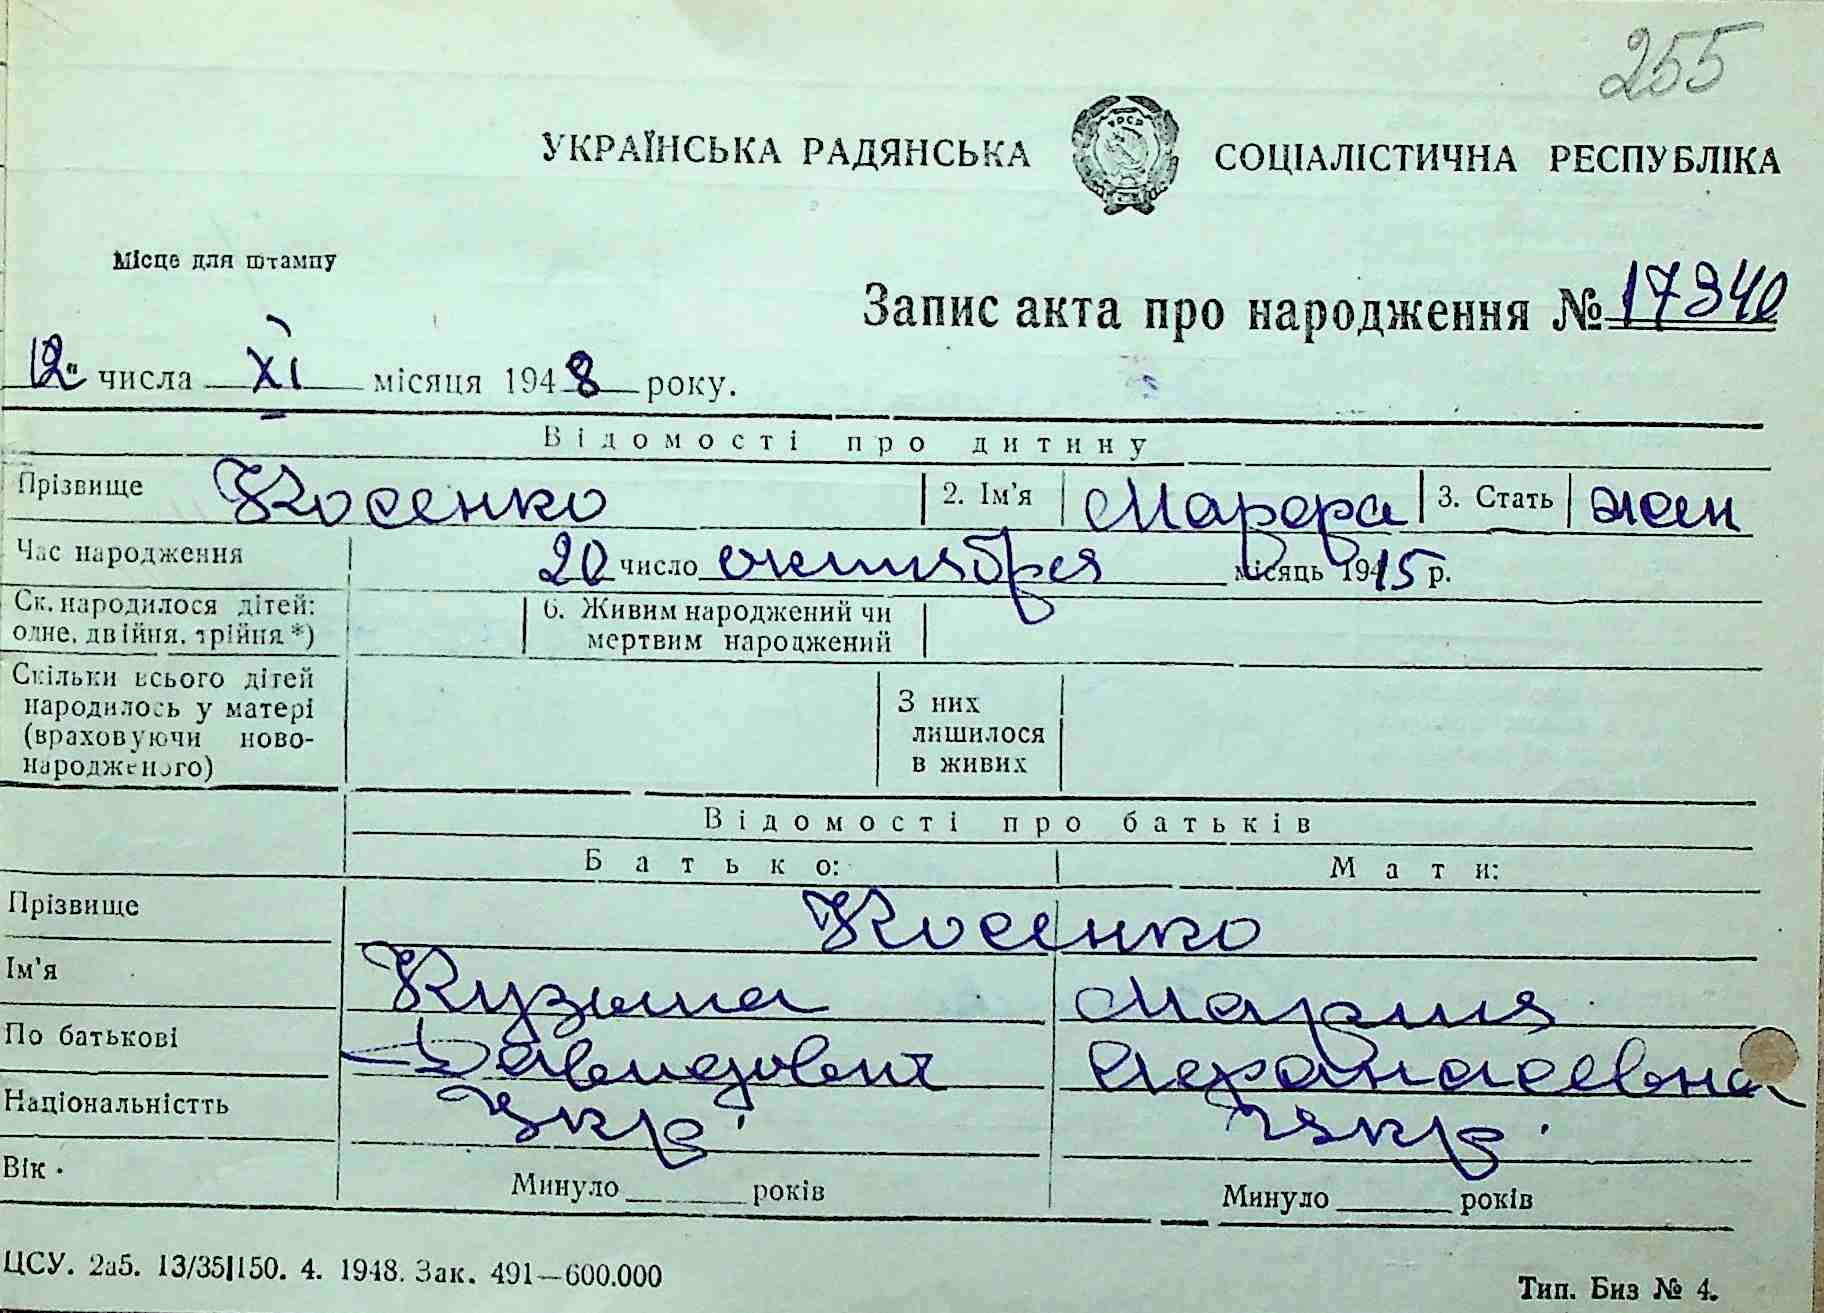 255
УКРАЇНСЬКА РАДЯНСЬКА СОЦІАЛІСТИЧНА РЕСПУБЛІКА
УРСР
Місце для штампу
Запис акта про народження № 17340
12" числа XI місяця 1948 року.
Відомості про дитину
Прізвище Косенко 2. Ім'я Марфа 3. Стать жен
Час народження 20 число октября місяць 1915 р.
Ск. народилося дітей: одне, двійня, трійня *)
6. Живим народжений чи мертвим народжений
Скільки всього дітей народилось у матері (враховуючи ново-народженого)
З них лишилося в живих
Відомості про батьків
Батько: Мати:
Прізвище Косенко
Ім'я Кузьма Мария
По батькові Давидович Афанасевна
Національністть Укр. Укр.
Вік Минуло ______ років Минуло ______ років
ЦСУ. 2аб. 13/35|150. 4. 1948. Зак. 491—600.000
Тип. Биз № 4.